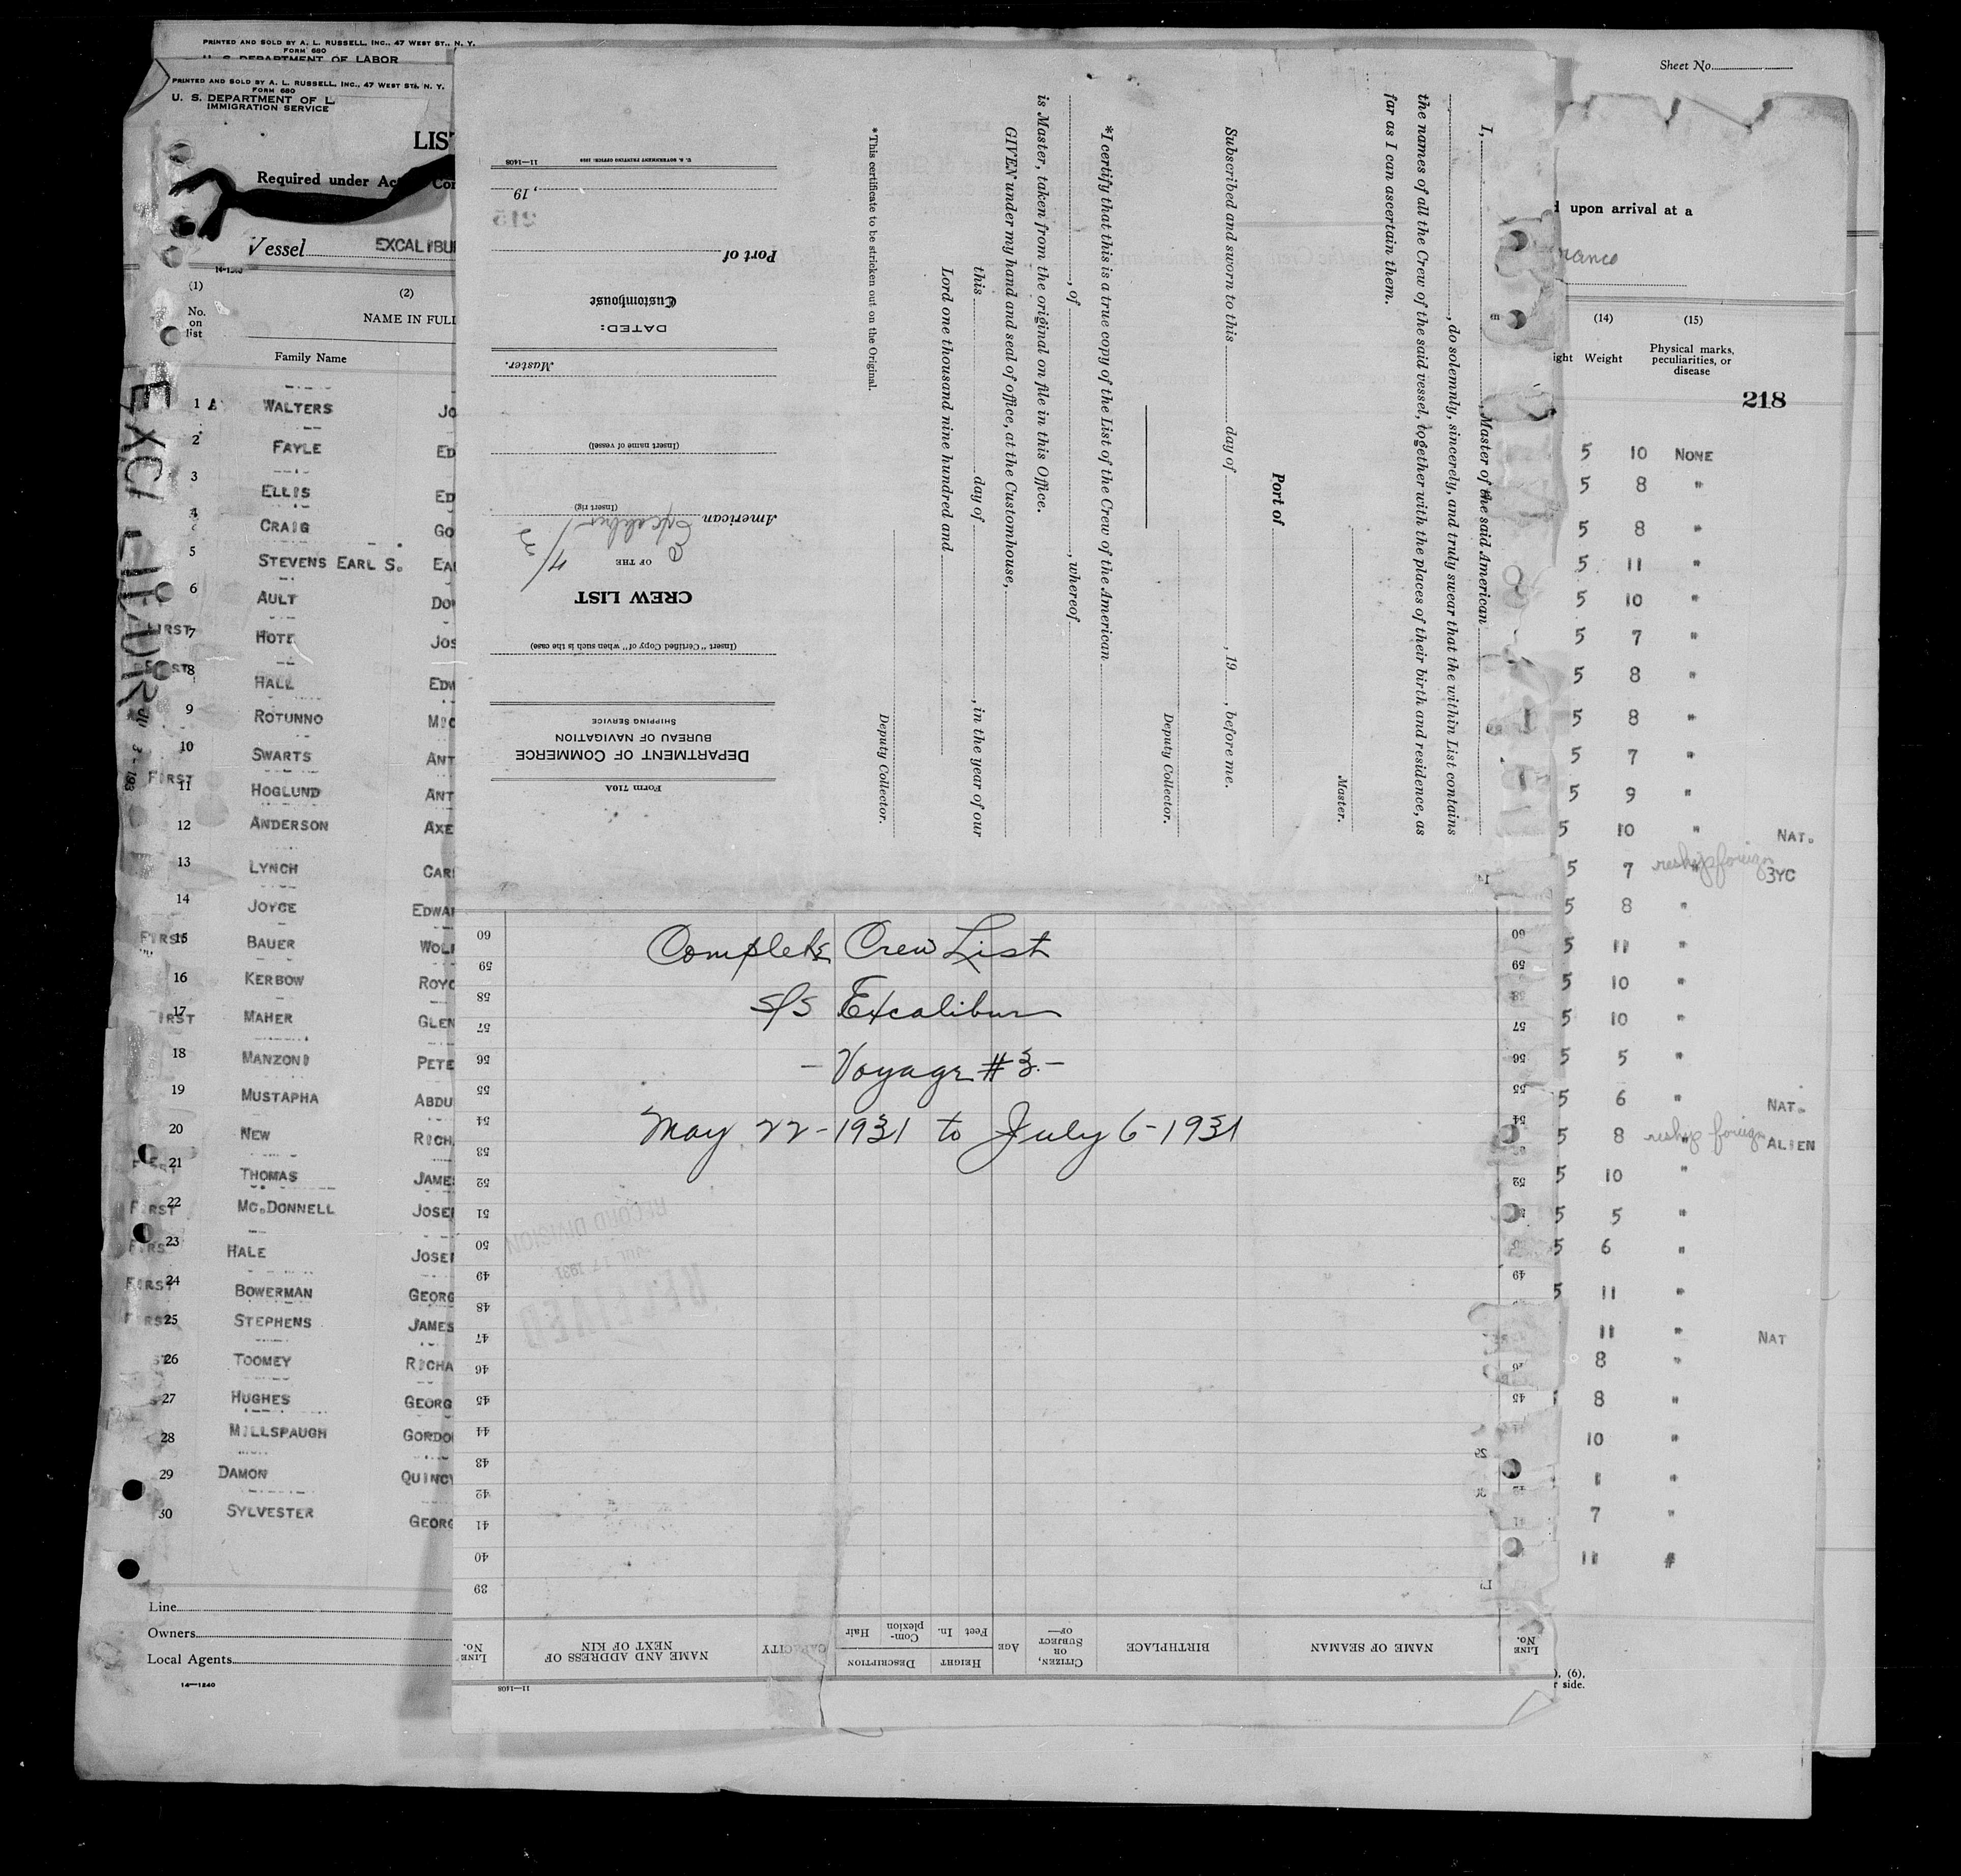 PRINTED AND SOLD BY A. L. RUSSELL, INC., 47 WEST ST., N. Y.
FORM 680
U. S. DEPARTMENT OF LABOR
PRINTED AND SOLD BY A. L. RUSSELL, INC., 47 WEST ST., N. Y.
FORM 680
U. S. DEPARTMENT OF L
IMMIGRATION SERVICE
LIS
Required under Act Con
Vessel EXCALIBU
(1) (2)
No. on list
NAME IN FULL
Family Name
1 WALTERS JO
2 FAYLE ED
3 ELLIS ED
4 CRAIG GO
5 STEVENS EARL S. EA
6 AULT DO
FIRST 7 HOTE JOS
8 HALL EDW
9 ROTUNNO MIC
10 SWARTS ANT
FIRST 11 HOGLUND ANT
12 ANDERSON AXE
13 LYNCH CAR
14 JOYCE EDWA
FIRST 15 BAUER WOL
16 KERBOW ROYC
FIRST 17 MAHER GLEN
18 MANZONI PETE
19 MUSTAPHA ABDU
20 NEW RICH
21 THOMAS JAME
FIRST 22 MC.DONNELL JOSE
FIRST 23 HALE JOSE
FIRST 24 BOWERMAN GEORG
FIRST 25 STEPHENS JAMES
26 TOOMEY RICHA
27 HUGHES GEORG
28 MILLSPAUGH GORDO
29 DAMON QUINCY
30 SYLVESTER GEORG
Line
Owners
Local Agents
14—1240
Form 710A
DEPARTMENT OF COMMERCE
BUREAU OF NAVIGATION
SHIPPING SERVICE
(Insert "Certified Copy of" when such is the case)
CREW LIST
OF THE
American Excalibur
(Insert rig)
(Insert name of vessel)
Master.
DATED:
Customhouse
Port of
, 19
11—1408
U. S. GOVERNMENT PRINTING OFFICE: 1930
215
I, , Master of the said American
, do solemnly, sincerely, and truly swear that the within List contains
the names of all the Crew of the said vessel, together with the places of their birth and residence, as
far as I can ascertain them.
Master.
Port of
Subscribed and sworn to this day of , 19 , before me.
Deputy Collector.
*I certify that this is a true copy of the List of the Crew of the American
, of , whereof
is Master, taken from the original on file in this Office.
GIVEN under my hand and seal of office, at the Customhouse,
this day of , in the year of our
Lord one thousand nine hundred and
Deputy Collector.
*This certificate to be stricken out on the Original.
Complete Crew List
S/S Excalibur
- Voyage #3. -
May 22-1931 to July 6-1931
RECORD DIVISION
JUL 17 1931
RECEIVED
60
59
58
57
56
55
54
53
52
51
50
49
48
47
46
45
44
43
42
41
40
39
LINE No.
NAME OF SEAMAN
BIRTHPLACE
CITIZEN, OR SUBJECT OF—
AGE
HEIGHT
Feet In.
DESCRIPTION
Complexion Hair
CAPACITY
NAME AND ADDRESS OF NEXT OF KIN
LINE No.
11—1408
Sheet No.
upon arrival at a
(14) (15)
ight Weight
Physical marks, peculiarities, or disease
218
5 10 NONE
5 8 "
5 8 "
5 11 "
5 10 "
5 7 "
5 8 "
5 8 "
5 7 "
5 9 "
5 10 " NAT.
5 7 " reship foreign 3YC
5 8 "
5 11 "
5 10 "
5 10 "
5 5 "
5 6 " NAT.
5 8 " reship foreign ALIEN
5 10 "
5 5 "
5 6 "
5 11 "
11 " NAT
8 "
8 "
10 "
"
7 "
11 "
), (6),
r side.